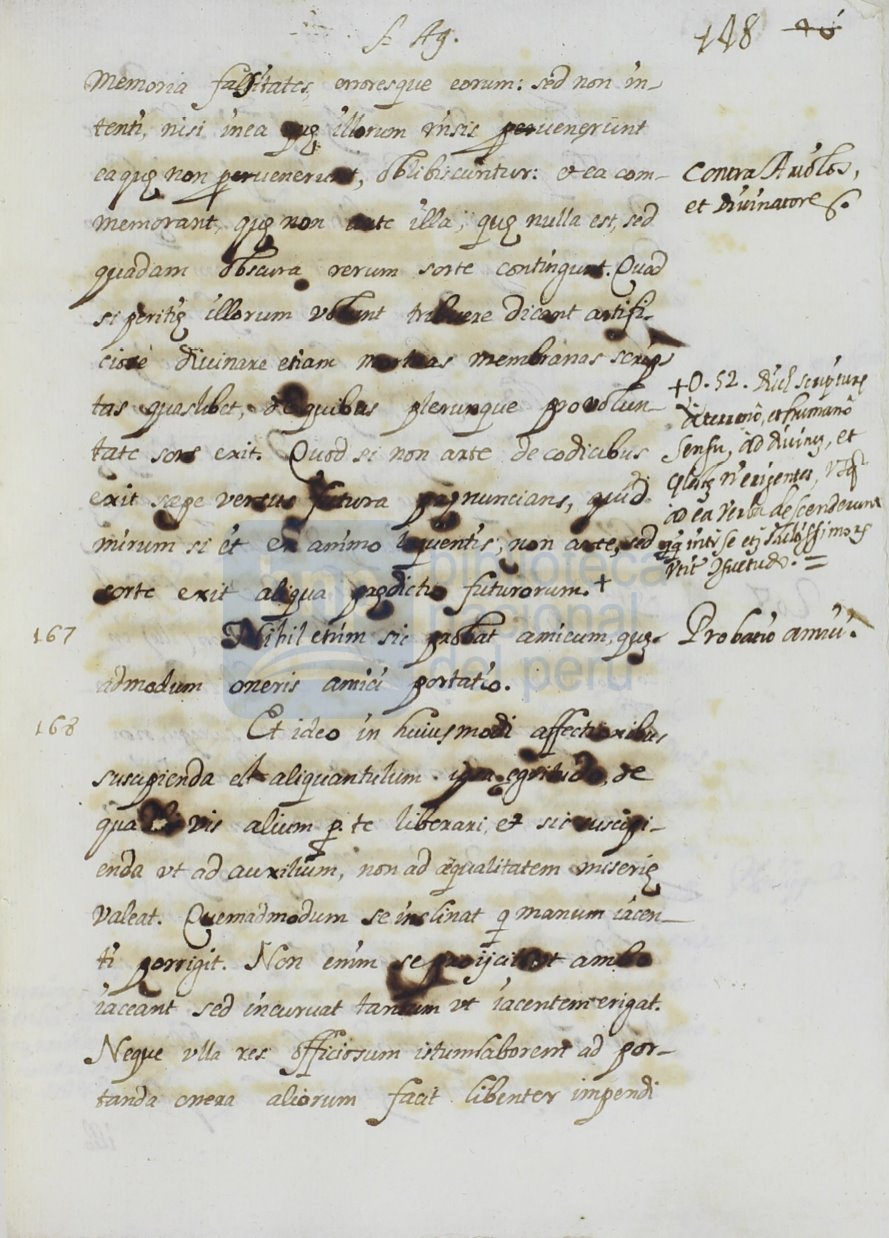 S. Ag.
148 46
Memoria falsitates, erroresque eorum: sed non in-
tenti, nisi in ea quę illorum rńsis peruenerunt
ea quę non peruenerunt, oblibiscuntur: et ea com-
memorant, quę non arte illa, quę nulla est, sed
quadam obscura rerum sorte contingunt. Quod
si peritię illorum volunt tribuere dicant artifi-
ciose divinare etiam mortuas membranas scrip-
tas quaslibet, de quibus plerunque pro volun-
tate sors exit. Quod si non arte de codicibus
exit sæpe versus futura prænuncians, quid
mirum si et ex animo loquentis, non arte, sed
sorte exit aliqua prædictio futurorum. +
Contra Auolos,
et divinatores.
+ D. 52. Diuel scripturę
terreno, et humano
sensu, ad diviny, et
erigentes, vsq
ad ea verba descenderunt
=
167
Nihil enim sic probat amicum, quę-
admodum oneris amici portatio.
Probatio amici.
168
Et ideo in huiusmodi affectionibus
suscipienda est aliquantulum ipsa egritudo, de
qua vis alium p. te liberari, et sic suscipi-
enda vt ad auxilium, non ad æqualitatem miserię
valeat. Quemadmodum se inclinat q manum iacen-
ti porrigit. Non enim se proijcit vt ambo
iaceant sed incuruat tantum vt iacentem erigat.
Neque vlla res officiosum istum laborem ad por-
tanda onera aliorum facit libenter impendi
biblioteca
nacional
del perú